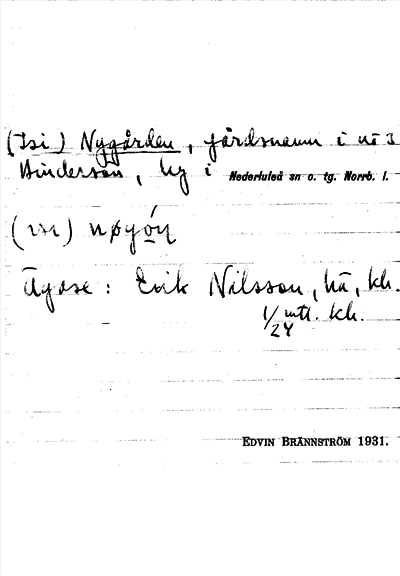 (Isi) Nygården, gårdsnamn i nr 3
Hinderson, by i Nederluleå sn o. tg. Norrb. l.
Ägare: Erik Nilsson, hä, kh.
1/24 mtl. kh.
EDVIN BRÄNNSTRÖM 1931.